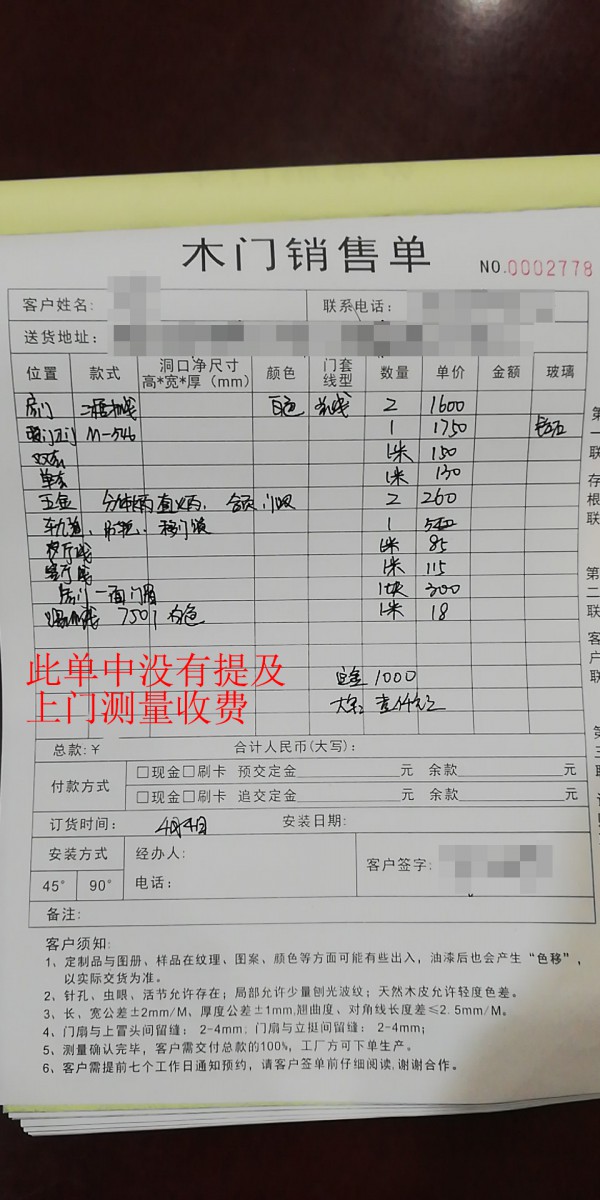 木门销售单
NO.0002778
客户姓名: 联系电话:
送货地址:
位置 款式 洞口净尺寸 高*宽*厚(mm) 颜色 门套线型 数量 单价 金额 玻璃
房门 白色 2 1600
M-546 1 1750
双套 1米 150
单套 1米 130
五金 2 260
1
1米 85
1米 115
房门一面门眉 1块 300
7501 白色 1米 18
此单中没有提及
上门测量收费
定金 1000
大写: 壹仟元
总款:¥ 合计人民币(大写):
付款方式 □现金□刷卡 预交定金 元 余款 元
□现金□刷卡 追交定金 元 余款 元
订货时间: 4月4日 安装日期:
安装方式 经办人: 客户签字:
45° 90° 电话:
备注:
客户须知:
1、定制品与图册、样品在纹理、图案、颜色等方面可能有些出入,油漆后也会产生“色移”,
以实际交货为准。
2、针孔、虫眼、活节允许存在;局部允许少量刨光波纹;天然木皮允许轻度色差。
3、长、宽公差±2mm/M、厚度公差±1mm,翘曲度、对角线长度差≤2.5mm/M。
4、门扇与上冒头间留缝: 2-4mm; 门扇与立挺间留缝: 2-4mm;
5、测量确认完毕,客户需交付总款的100%,工厂方可下单生产。
6、客户需提前七个工作日通知预约,请客户签单前仔细阅读,谢谢合作。